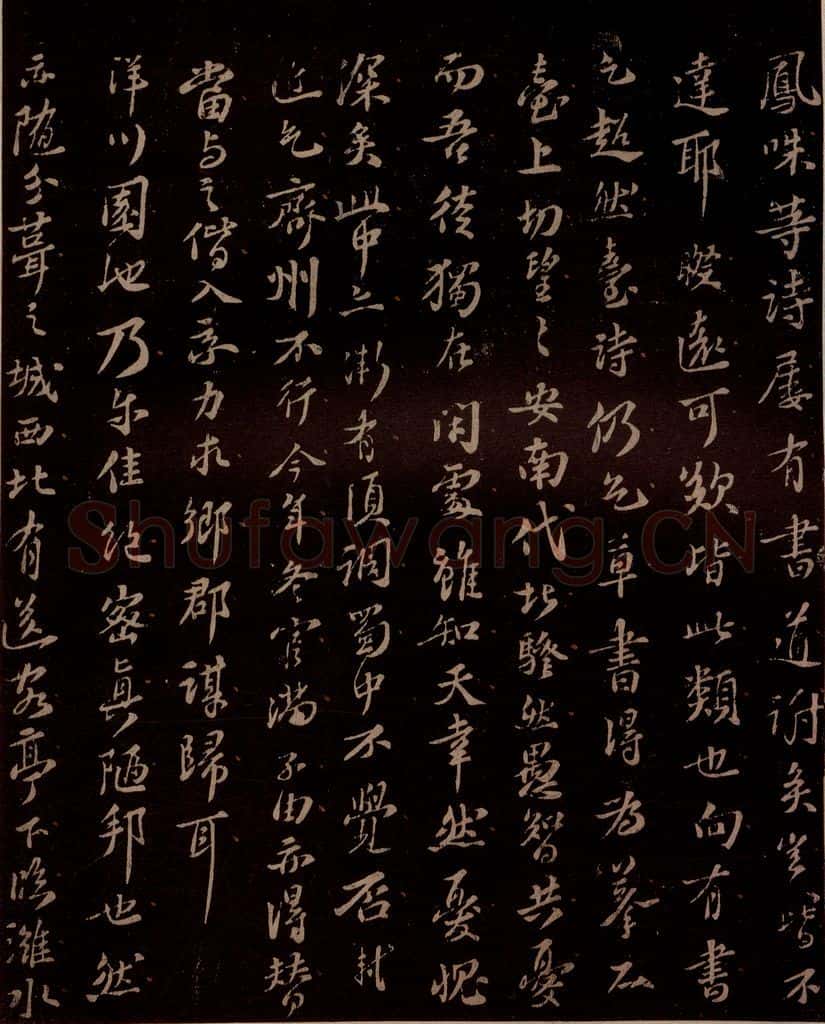 鳳咮等詩屡有書道謝矣豈皆不
達耶暌遠可歎皆此類也向有書
乞超然臺詩仍乞草書得為摹石
臺上切望々安南代北騷然愚智共憂
而吾徒獨在閑處雖知天幸然憂愧
深矣此中亦漸有須調蜀中不覺否軾
近乞齊州不行今年冬官滿子由亦得替
當与之偕入京力求鄉郡謀歸耳
洋川園池乃尔佳絕密真陋邦也然
亦随分葺之城西北有送客亭下臨濰水
Shufawang.CN